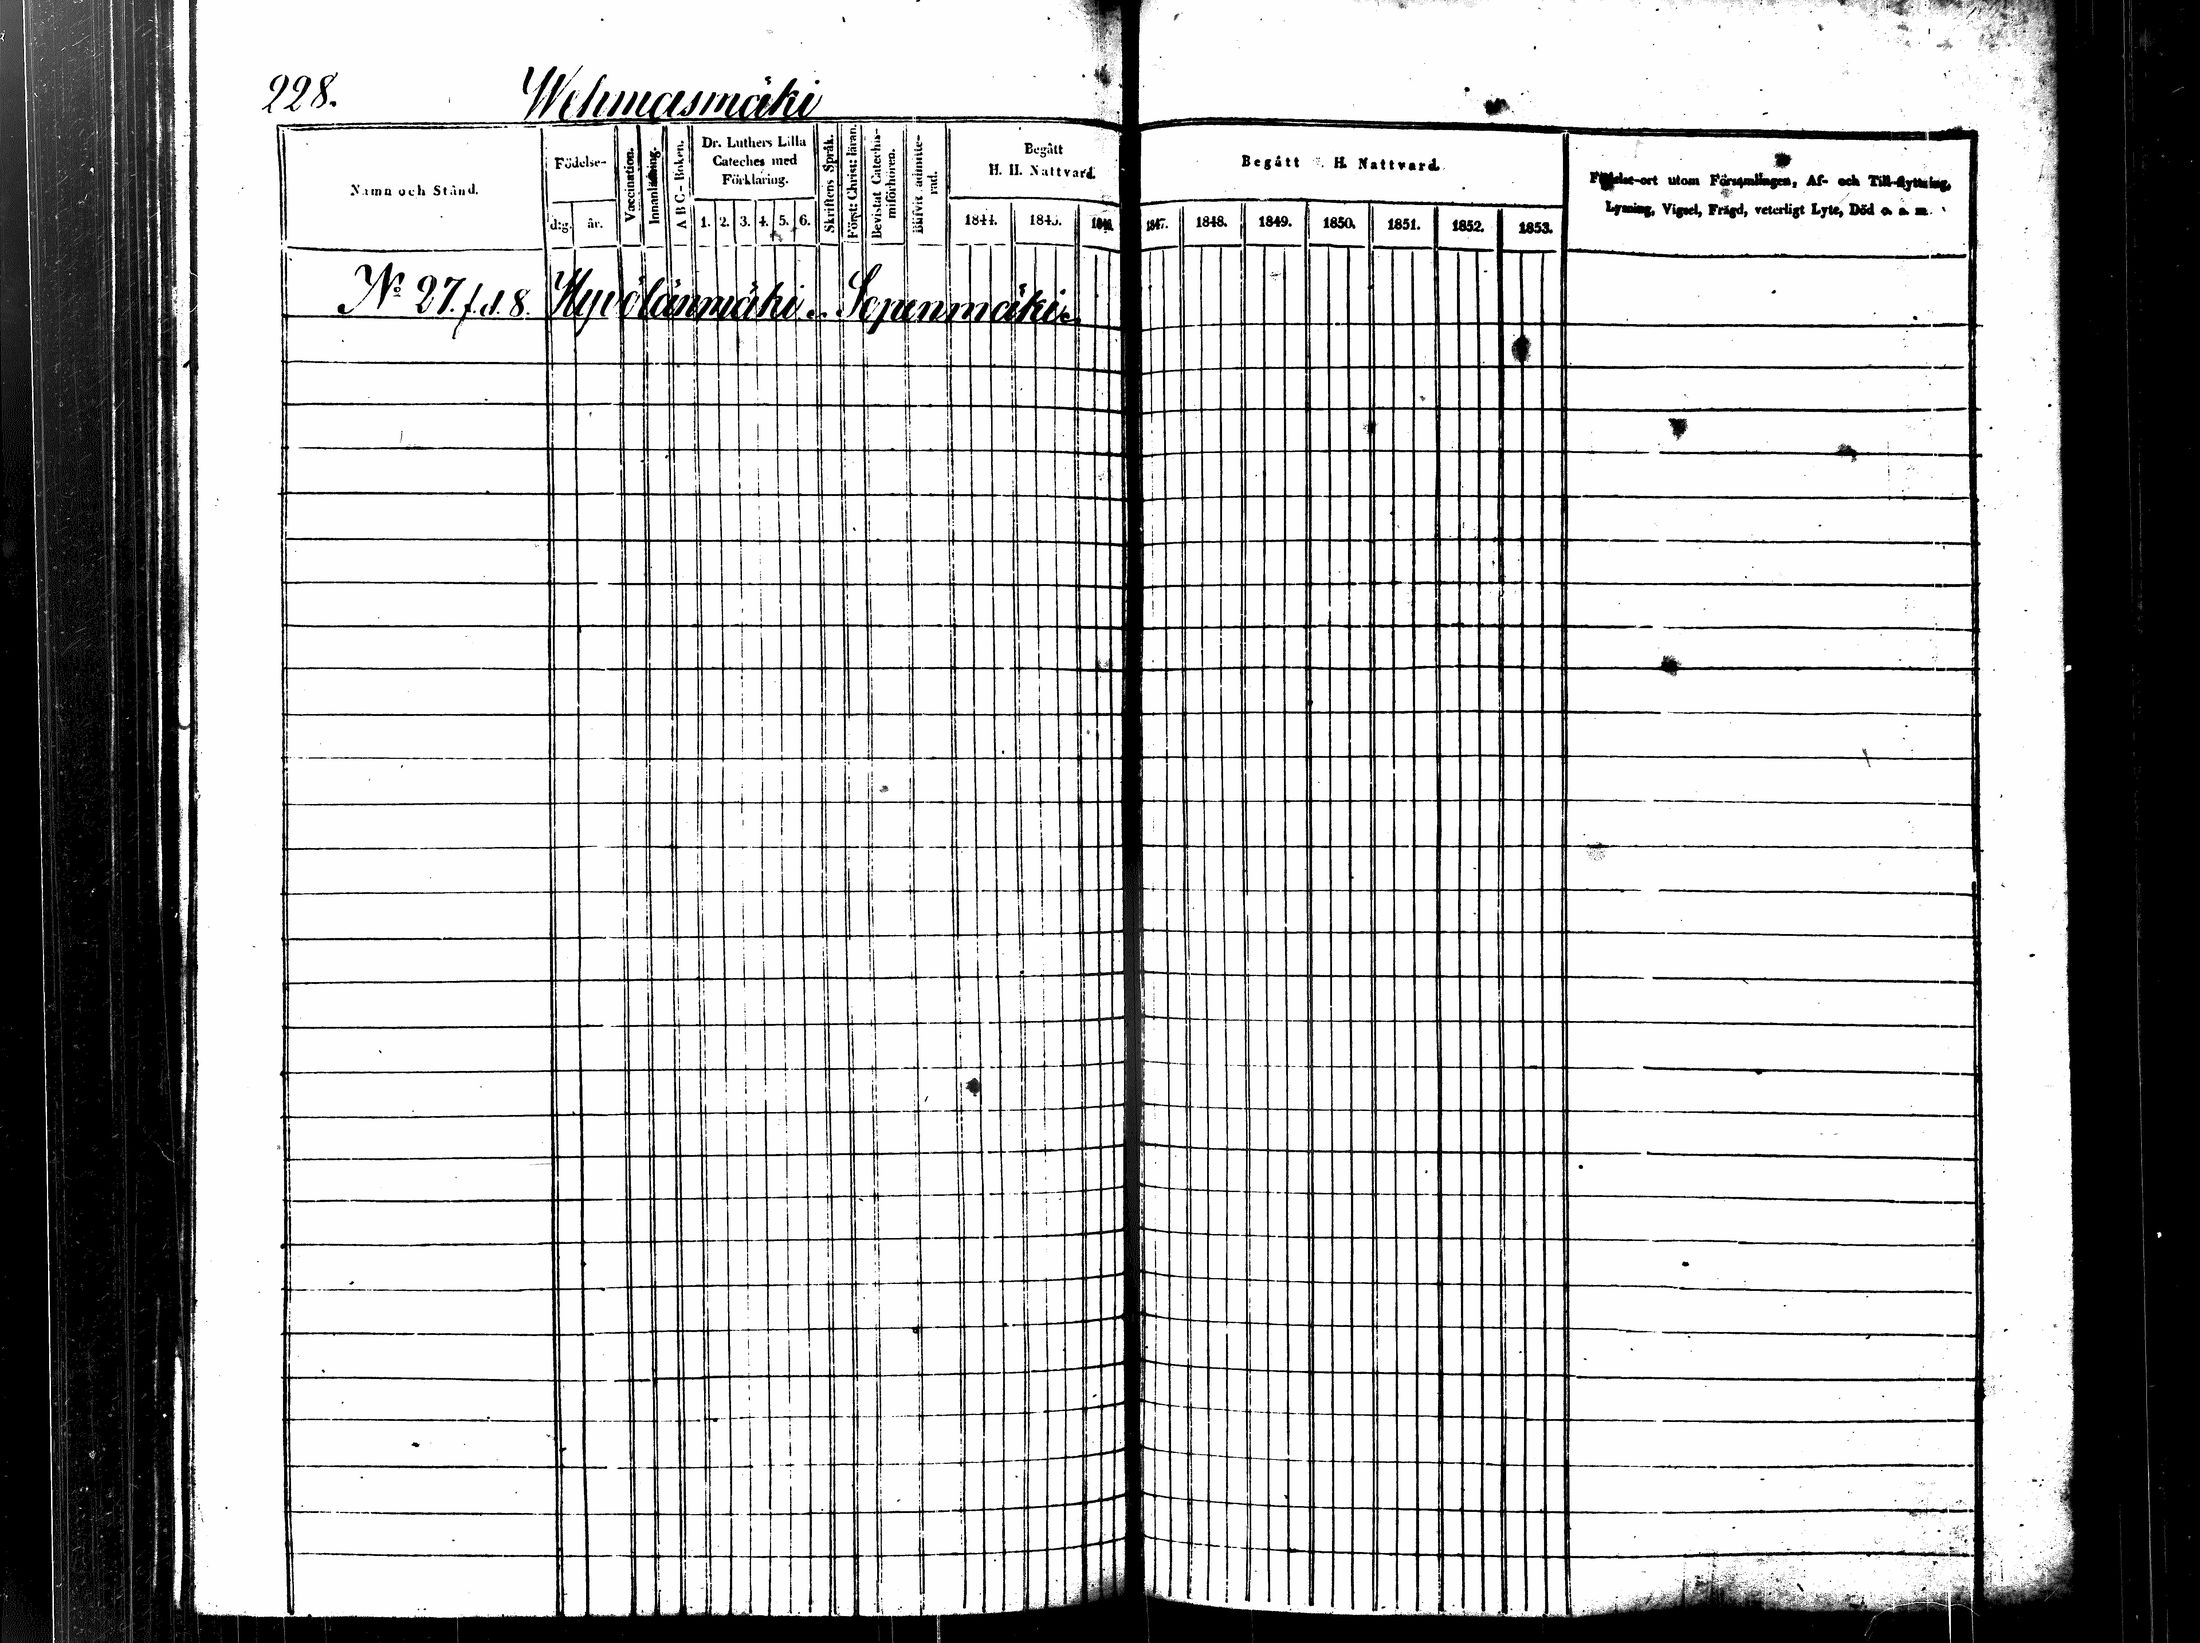 228. Wehmasmäki
Namn och Stånd.
Födelse-
d:g. år.
Vaccination.
Innanläsning.
A B C - Boken.
Dr. Luthers Lilla
Cateches med
Förklaring.
1. 2. 3. 4. 5. 6.
Skriftens Språk.
Först: Christ: läran.
Bevistat Catechis-
miförhören.
Blifvit admitte-
rad.
Begått
H. H. Nattvard.
1844. 1845. 1846.
Begått H. Nattvard.
1847. 1848. 1849. 1850. 1851. 1852. 1853.
Födelse-ort utom Församlingen, Af- och Till-flyttning,
Lysning, Vigsel, Frägd, veterligt Lyte, Död o. s. m.
No 27. f.d. 8. Hyvölänmäki. Sopenmäki.